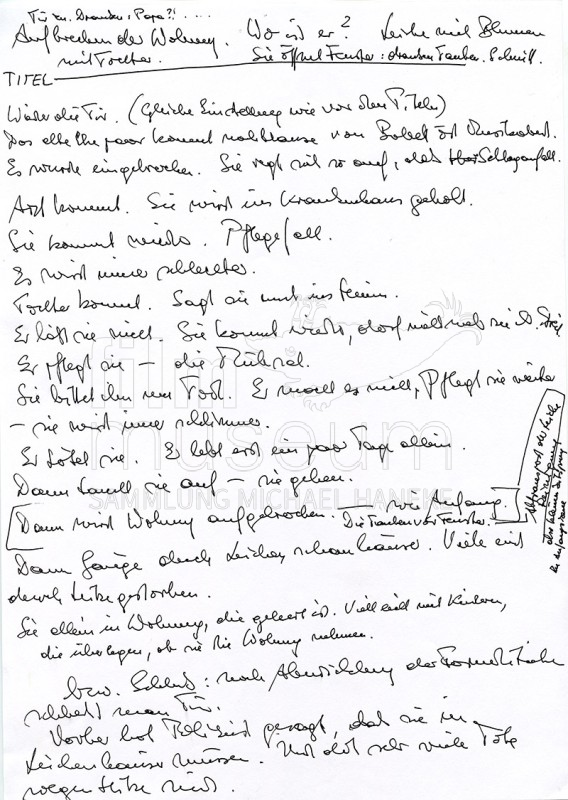 Tür zu. Draußen: Papa?! ....
Aufbrechen der Wohnung. Wo ist er? Leiche mit Blumen
mit Tochter. Sie öffnet Fenster: draußen Tauben. Schnitt.
TITEL
Wieder die Tür. (Gleiche Einstellung wie vor dem Titel)
Das alte Ehepaar kommt nachhause von
Es wurde eingebrochen. Sie regt sich so auf, daß Schlaganfall.
Arzt kommt. Sie wird ins Krankenhaus geholt.
Sie kommt wieder. Pflegefall.
Es wird immer schlechter.
Tochter kommt. Sagt sie muß ins Heim.
Er läßt sie nicht. Sie kommt wieder, darf nicht
Er pflegt sie – die Mühsal.
Sie bittet ihn um Tod. Er macht es nicht, Pflegt sie weiter
– sie wird immer schlimmer.
Er tötet sie. Er lebt erst ein paar Tage allein.
Dann taucht sie auf – sie gehen.
Dann wird Wohnung aufgebrochen. — wie Anfang.
Die Tauben vor Fenster.
Abtransport der Leiche
Dann Gänge durch Leichenschauhäuser. Viele sind
durch Hitze gestorben.
Sie allein in Wohnung, die geleert ist. Vielleicht mit Kindern,
die überlegen, ob sie die Wohnung nehmen.
bzw. Schluß: nach Abwicklung der Formalitäten
schließt man Tür.
Vorher hat Polizist gesagt, daß sie in
Leichenhäuser müssen. Und daß sehr viele Tote
wegen Hitze sind.
film
museum
SAMMLUNG MICHAEL HANEKE